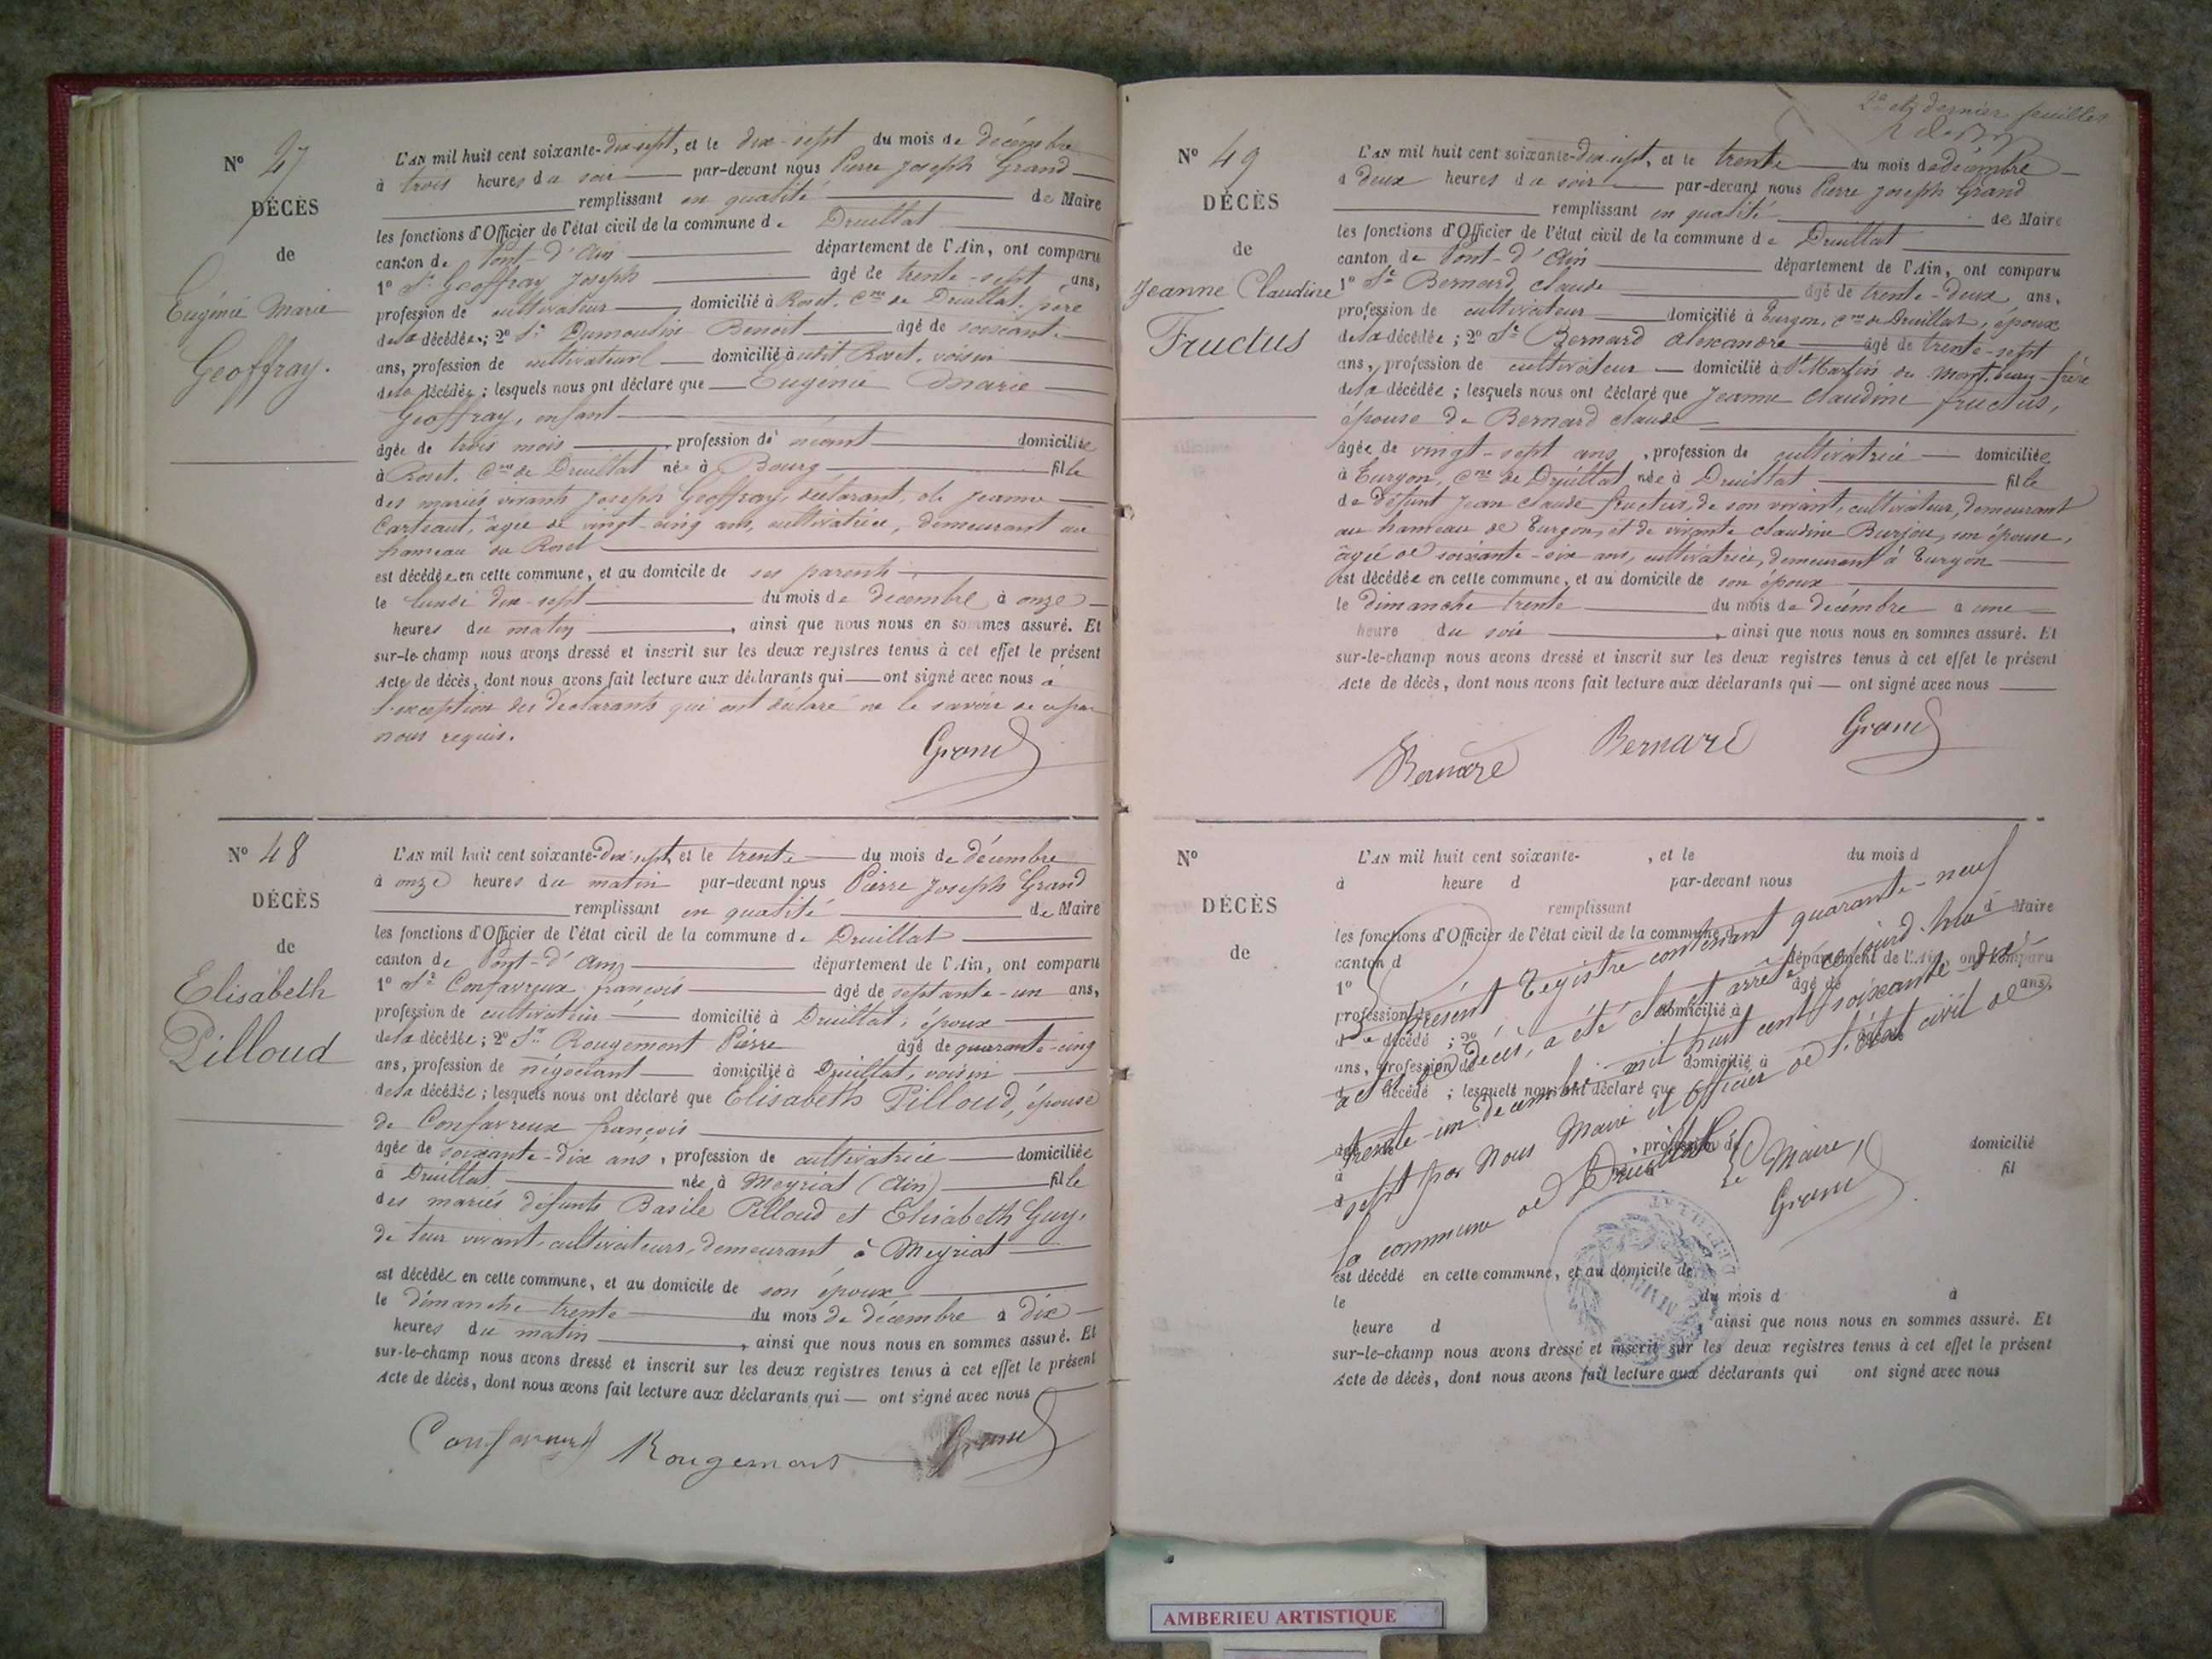 Nº 47
DÉCÈS
de
Eugénie Marie
Geoffray.
L'AN mil huit cent soixante-dix-sept, et le dix-sept du mois de décembre
à trois heures du soir par-devant nous Pierre Joseph Grand
remplissant en qualité de Maire
les fonctions d'Officier de l'état civil de la commune de Druillat
canton de Pont-d'Ain département de l'Ain, ont comparu
1º Sr Geoffray Joseph âgé de trente-sept ans,
profession de cultivateur domicilié à Roset, Cne de Druillat, père
de la décédée; 2º Sr Dumoulin Benoit âgé de soixante
ans, profession de cultivateur domicilié à udit Roset, voisin
de la décédée; lesquels nous ont déclaré que Eugénie Marie
Geoffray, enfant
âgée de trois mois, profession de néant domiciliée
à Roset, Cne de Druillat née à Bourg fille
des mariés vivants Joseph Geoffray, déclarant, et Jeanne
âgée de vingt-cinq ans, cultivatrice, demeurant au
hameau du Roset
est décédée en cette commune, et au domicile de ses parents
le lundi dix-sept du mois de décembre à onze
heures du matin, ainsi que nous nous en sommes assuré. Et
sur-le-champ nous avons dressé et inscrit sur les deux registres tenus à cet effet le présent
Acte de décès, dont nous avons fait lecture aux déclarants qui ont signé avec nous à
l'exception des déclarants qui ont déclaré ne le savoir de ce par
nous requis.
Grand
Nº 48
DÉCÈS
de
Elisabeth
Pilloud
L'AN mil huit cent soixante-dix-sept, et le trente du mois de décembre
à onze heures du matin par-devant nous Pierre Joseph Grand
remplissant en qualité de Maire
les fonctions d'Officier de l'état civil de la commune de Druillat
canton de Pont-d'Ain département de l'Ain, ont comparu
1º Sr Confavreux françois âgé de septante-un ans,
profession de cultivateur domicilié à Druillat, époux
de la décédée; 2º Sr Rougemont Pierre âgé de quarante-cinq
ans, profession de négociant domicilié à Druillat, voisin
de la décédée; lesquels nous ont déclaré que Elisabeth Pilloud, épouse
de Confavreux françois
âgée de soixante-dix ans, profession de cultivatrice domiciliée
à Druillat née à Meyriat (Ain) fille
des mariés défunts Basile Pilloud et Elisabeth Guy,
de leur vivant, cultivateurs, demeurant à Meyriat
est décédée en cette commune, et au domicile de son époux
le dimanche trente du mois de décembre à dix
heures du matin, ainsi que nous nous en sommes assuré. Et
sur-le-champ nous avons dressé et inscrit sur les deux registres tenus à cet effet le présent
Acte de décès, dont nous avons fait lecture aux déclarants qui ont signé avec nous
Confavreux Rougemont Grand
2e et dernier feuillet
Nº 49
DÉCÈS
de
Jeanne Claudine
Fructus
L'AN mil huit cent soixante-dix-sept, et le trente du mois de décembre
à deux heures du soir par-devant nous Pierre Joseph Grand
remplissant en qualité de Maire
les fonctions d'Officier de l'état civil de la commune de Druillat
canton de Pont-d'Ain département de l'Ain, ont comparu
1º Sr Bernard, claude âgé de trente-deux ans,
profession de cultivateur domicilié à Turgon, cne de Druillat, époux
de la décédée; 2º Sr Bernard alexandre âgé de trente-sept
ans, profession de cultivateur domicilié à St Martin du Mont, beau-frère
de la décédée; lesquels nous ont déclaré que Jeanne Claudine fructus,
épouse de Bernard claude
âgée de vingt-sept ans, profession de cultivatrice domiciliée
à Turgon, Cne de Druillat née à Druillat fille
de défunt Jean claude fructus, de son vivant, cultivateur, demeurant
au hameau de Turgon, et de vivante claudine Burjou, son épouse,
âgée de soixante-six ans, cultivatrice, demeurant à Turgon
est décédée en cette commune, et au domicile de son époux
le dimanche trente du mois de décembre à une
heure du soir, ainsi que nous nous en sommes assuré. Et
sur-le-champ nous avons dressé et inscrit sur les deux registres tenus à cet effet le présent
Acte de décès, dont nous avons fait lecture aux déclarants qui ont signé avec nous
Bernard Bernard Grand
Nº
DÉCÈS
de
L'AN mil huit cent soixante- , et le du mois d
à heure d par-devant nous
remplissant d Maire
les fonctions d'Officier de l'état civil de la commune d
canton d département de l'Ain, ont comparu
1º âgé de ans,
profession de domicilié à
d décédé ; 2º âgé de
ans, profession de domicilié à
d décédé ; lesquels nous ont déclaré que
, profession de domicilié
à fil
Le présent Registre contenant quarante-neuf
actes de décès, a été clos et arrêté aujourd'hui
trente-un décembre mil huit cent soixante-dix
sept par Nous Maire et officier de l'état civil de
la commune de Druillat
Le Maire,
Grand
est décédé en cette commune, et au domicile de
le du mois d à
heure d , ainsi que nous nous en sommes assuré. Et
sur-le-champ nous avons dressé et inscrit sur les deux registres tenus à cet effet le présent
Acte de décès, dont nous avons fait lecture aux déclarants qui ont signé avec nous
AMBERIEU ARTISTIQUE